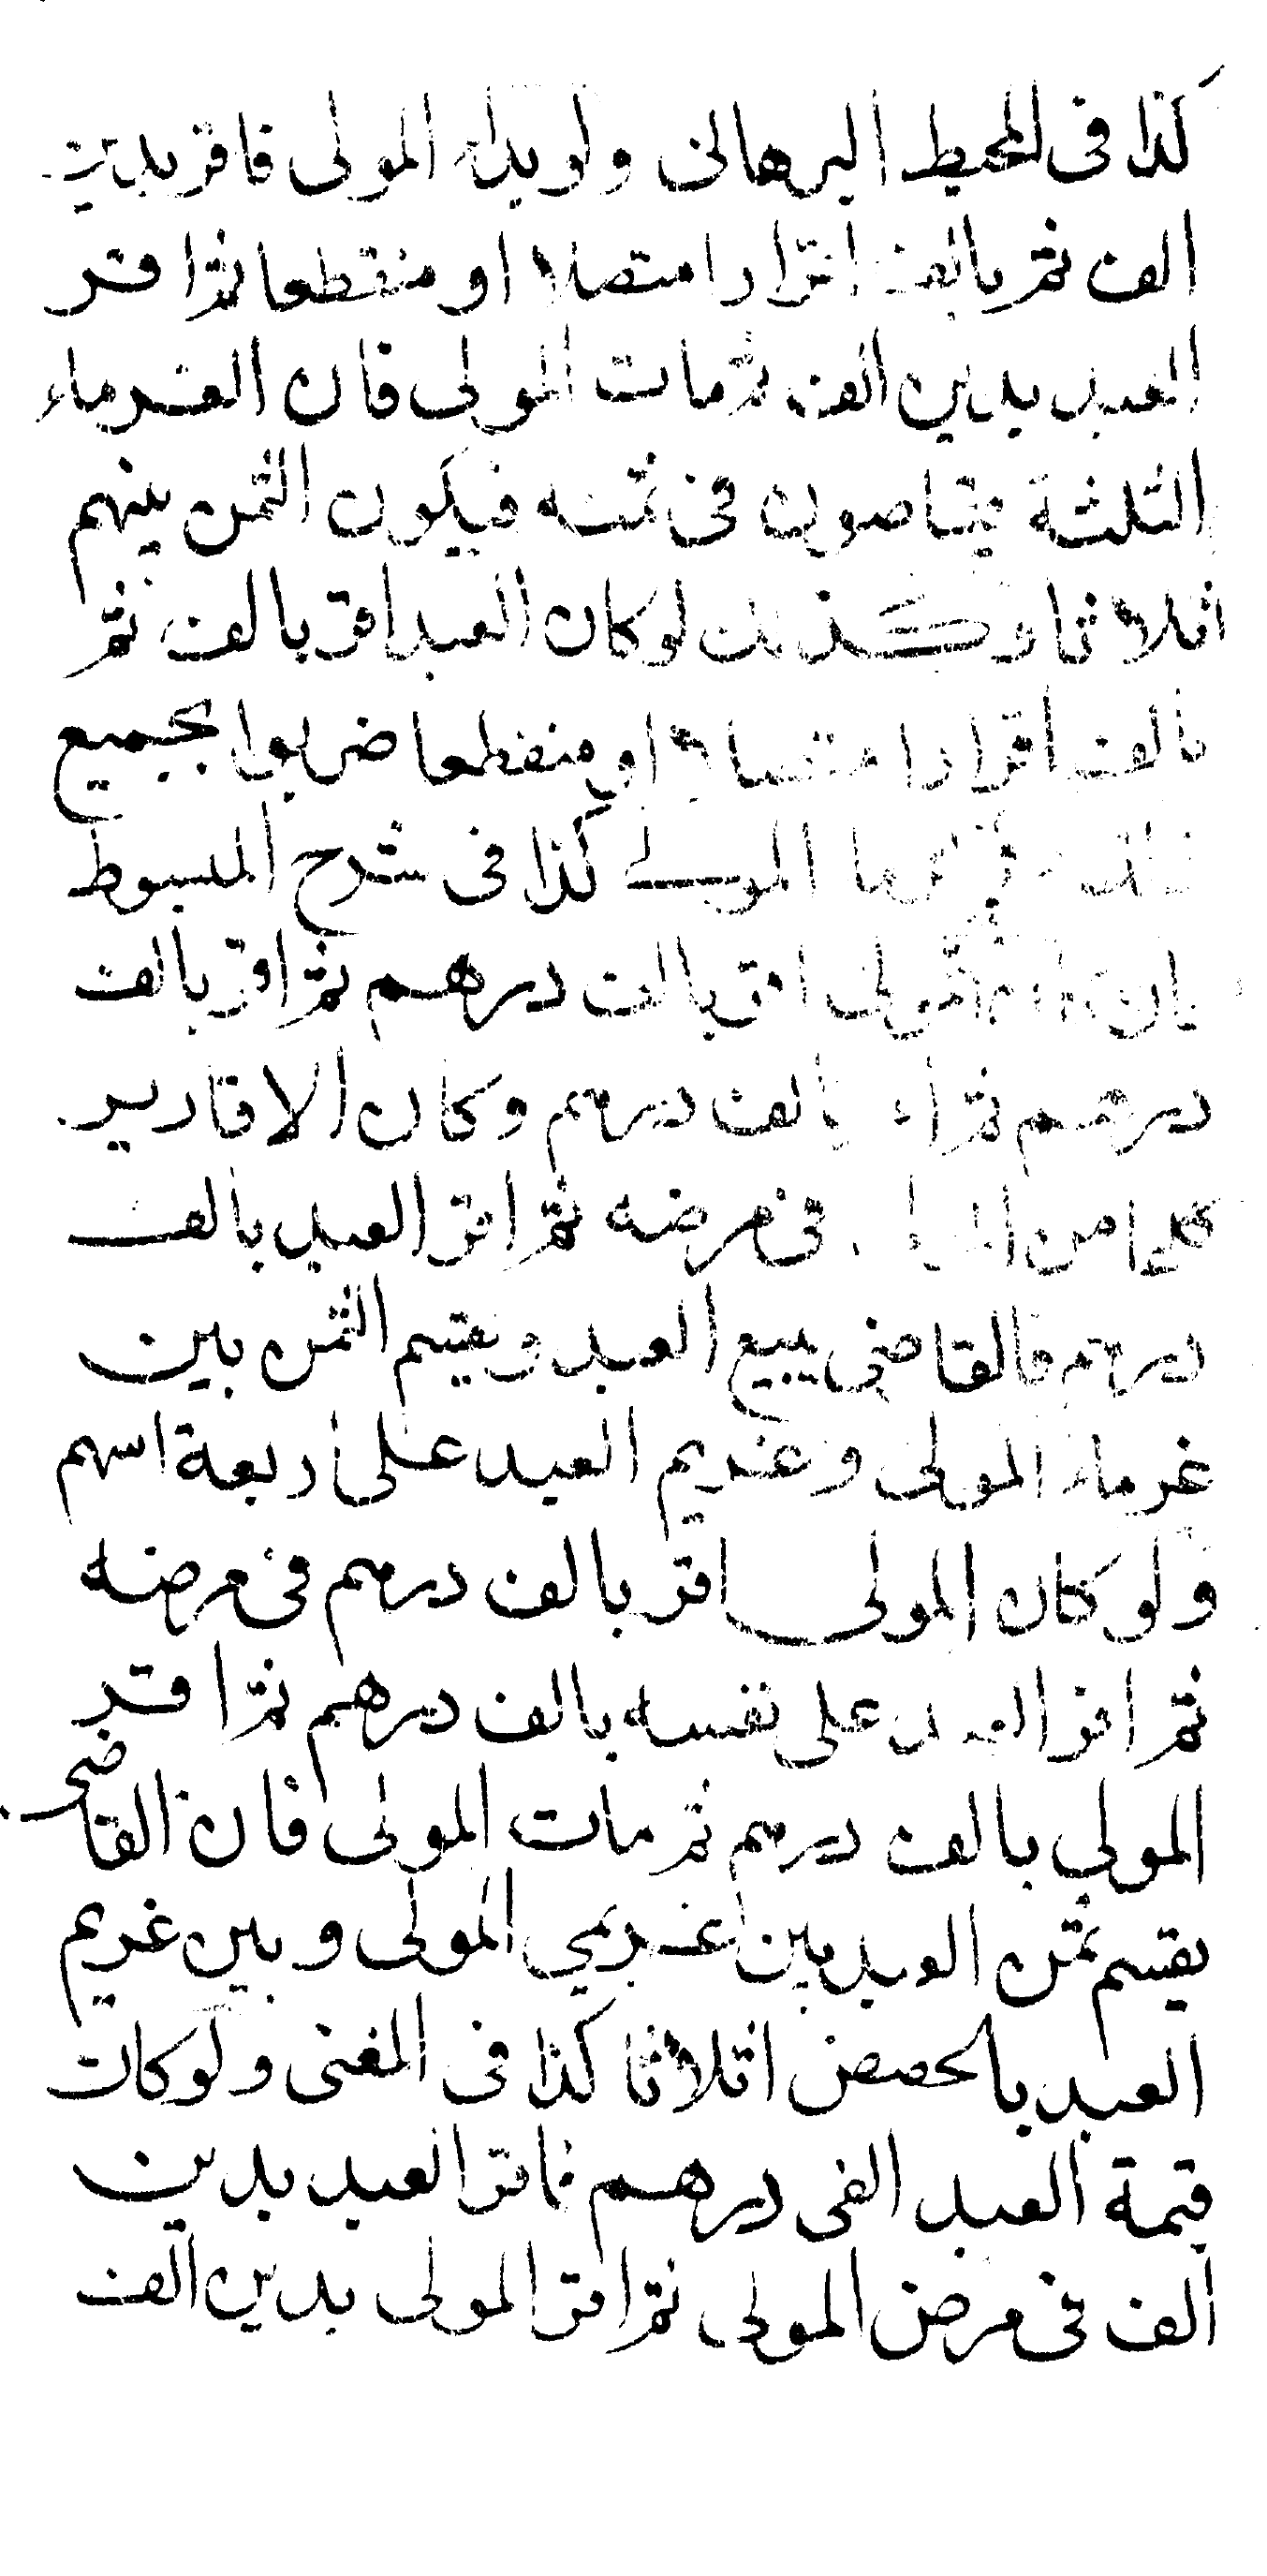 كذا فى المحيط البرهانى ولو بدأ المولى فاقر بدين
الف ثم بالف اقرارا متصلا او منقطعا ثم اقر
العبد بدين الف ثم مات المولى فان الغرماء
الثلثة يتحاصون فى ثمنه فيكون الثمن بينهم
اثلاثا وكذلك لو كان العبد اقر بالف ثم
بالف اقرارا متصلا او منقطعا ضربوا بجميع
ذلك مع غرماء المولى كذا فى شرح المبسوط
المولى اقر بالف درهم ثم اقر بالف
درهم ثم بالف درهم وكان الاقارير
كلها من المولى فى مرضه ثم اقر العبد بالف
درهم فالقاضى يبيع العبد ويقسم الثمن بين
غرماء المولى وغريم العبد على اربعة اسهم
ولو كان المولى اقر بالف درهم فى مرضه
ثم اقر العبد على نفسه بالف درهم ثم اقر
المولى بالف درهم ثم مات المولى فان القاضى
يقسم ثمن العبد بين غريمي المولى وبين غريم
العبد بالحصص اثلاثا كذا فى المغنى ولو كانت
قيمة العبد الفى درهم فاقر العبد بدين
الف فى مرض المولى ثم اقر المولى بدين الف